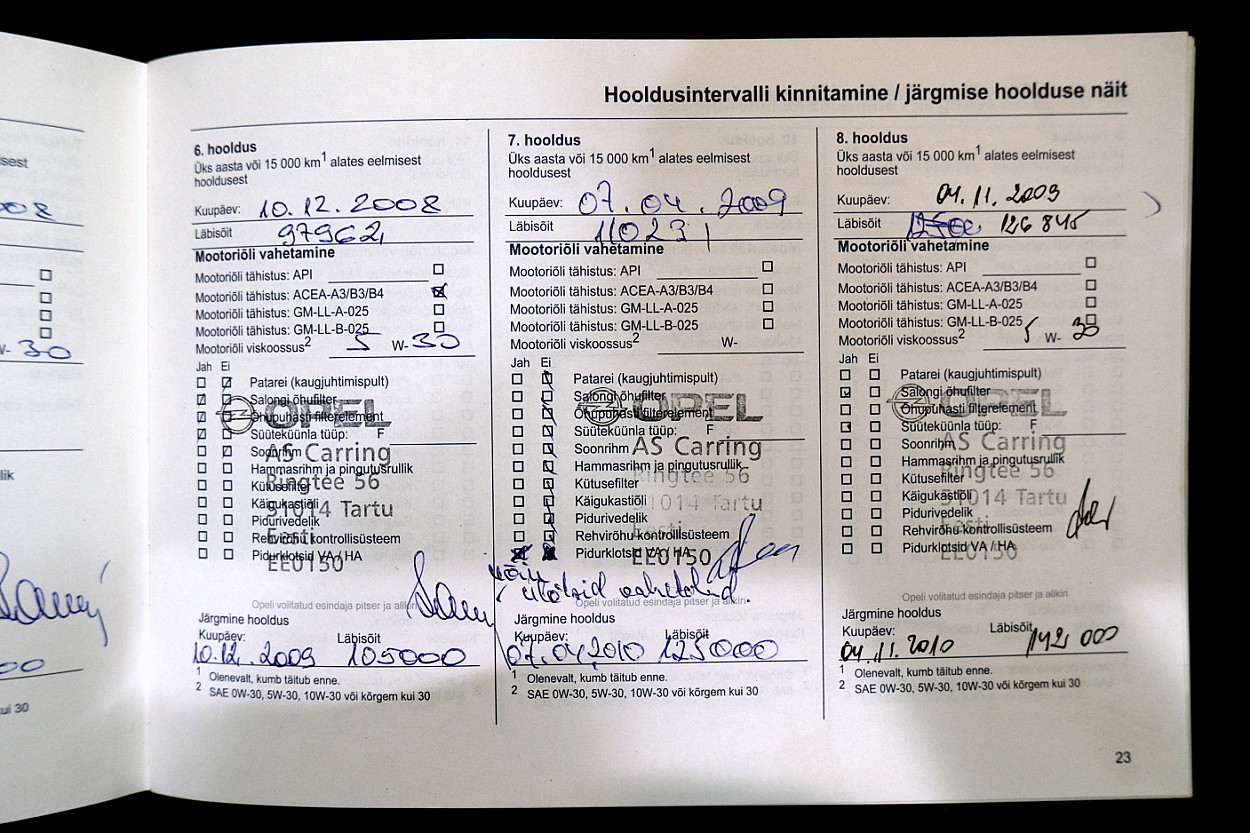 Hooldusintervalli kinnitamine / järgmise hoolduse näit
6. hooldus
Üks aasta või 15 000 km1 alates eelmisest
hooldusest
Kuupäev: 10.12.2008
Läbisõit 97962
Mootoriõli vahetamine
Mootoriõli tähistus: API
Mootoriõli tähistus: ACEA-A3/B3/B4
Mootoriõli tähistus: GM-LL-A-025
Mootoriõli tähistus: GM-LL-B-025
Mootoriõli viskoossus2 5 W- 30
Jah Ei
Patarei (kaugjuhtimispult)
Salongi õhufilter
Õhupuhasti filterelement
Süüteküünla tüüp: F
Soonrihm
Hammasrihm ja pingutusrullik
Kütusefilter
Käigukastiõli
Pidurivedelik
Rehvirõhu kontrollisüsteem
Pidurklotsid VA / HA
OPEL
AS Carring
Ringtee 56
51014 Tartu
Eesti
EE0150
Opeli volitatud esindaja pitser ja allkiri
Järgmine hooldus
Kuupäev: Läbisõit
10.12.2009 105000
1 Olenevalt, kumb täitub enne.
2 SAE 0W-30, 5W-30, 10W-30 või kõrgem kui 30
7. hooldus
Üks aasta või 15 000 km1 alates eelmisest
hooldusest
Kuupäev: 07.04.2009
Läbisõit 110231
Mootoriõli vahetamine
Mootoriõli tähistus: API
Mootoriõli tähistus: ACEA-A3/B3/B4
Mootoriõli tähistus: GM-LL-A-025
Mootoriõli tähistus: GM-LL-B-025
Mootoriõli viskoossus2 W-
Jah Ei
Patarei (kaugjuhtimispult)
Salongi õhufilter
Õhupuhasti filterelement
Süüteküünla tüüp: F
Soonrihm
Hammasrihm ja pingutusrullik
Kütusefilter
Käigukastiõli
Pidurivedelik
Rehvirõhu kontrollisüsteem
Pidurklotsid VA / HA
OPEL
AS Carring
Ringtee 56
51014 Tartu
Eesti
EE0150
vahetatud.
Opeli volitatud esindaja pitser ja allkiri
Järgmine hooldus
Kuupäev: Läbisõit
07.04.2010 125000
1 Olenevalt, kumb täitub enne.
2 SAE 0W-30, 5W-30, 10W-30 või kõrgem kui 30
8. hooldus
Üks aasta või 15 000 km1 alates eelmisest
hooldusest
Kuupäev: 04.11.2009
Läbisõit 126 845
Mootoriõli vahetamine
Mootoriõli tähistus: API
Mootoriõli tähistus: ACEA-A3/B3/B4
Mootoriõli tähistus: GM-LL-A-025
Mootoriõli tähistus: GM-LL-B-025
Mootoriõli viskoossus2 5 W- 30
Jah Ei
Patarei (kaugjuhtimispult)
Salongi õhufilter
Õhupuhasti filterelement
Süüteküünla tüüp: F
Soonrihm
Hammasrihm ja pingutusrullik
Kütusefilter
Käigukastiõli
Pidurivedelik
Rehvirõhu kontrollisüsteem
Pidurklotsid VA / HA
OPEL
AS Carring
Ringtee 56
51014 Tartu
Eesti
EE0150
Opeli volitatud esindaja pitser ja allkiri
Järgmine hooldus
Kuupäev: Läbisõit
04.11.2010 142 000
1 Olenevalt, kumb täitub enne.
2 SAE 0W-30, 5W-30, 10W-30 või kõrgem kui 30
23
W- 30
kui 30